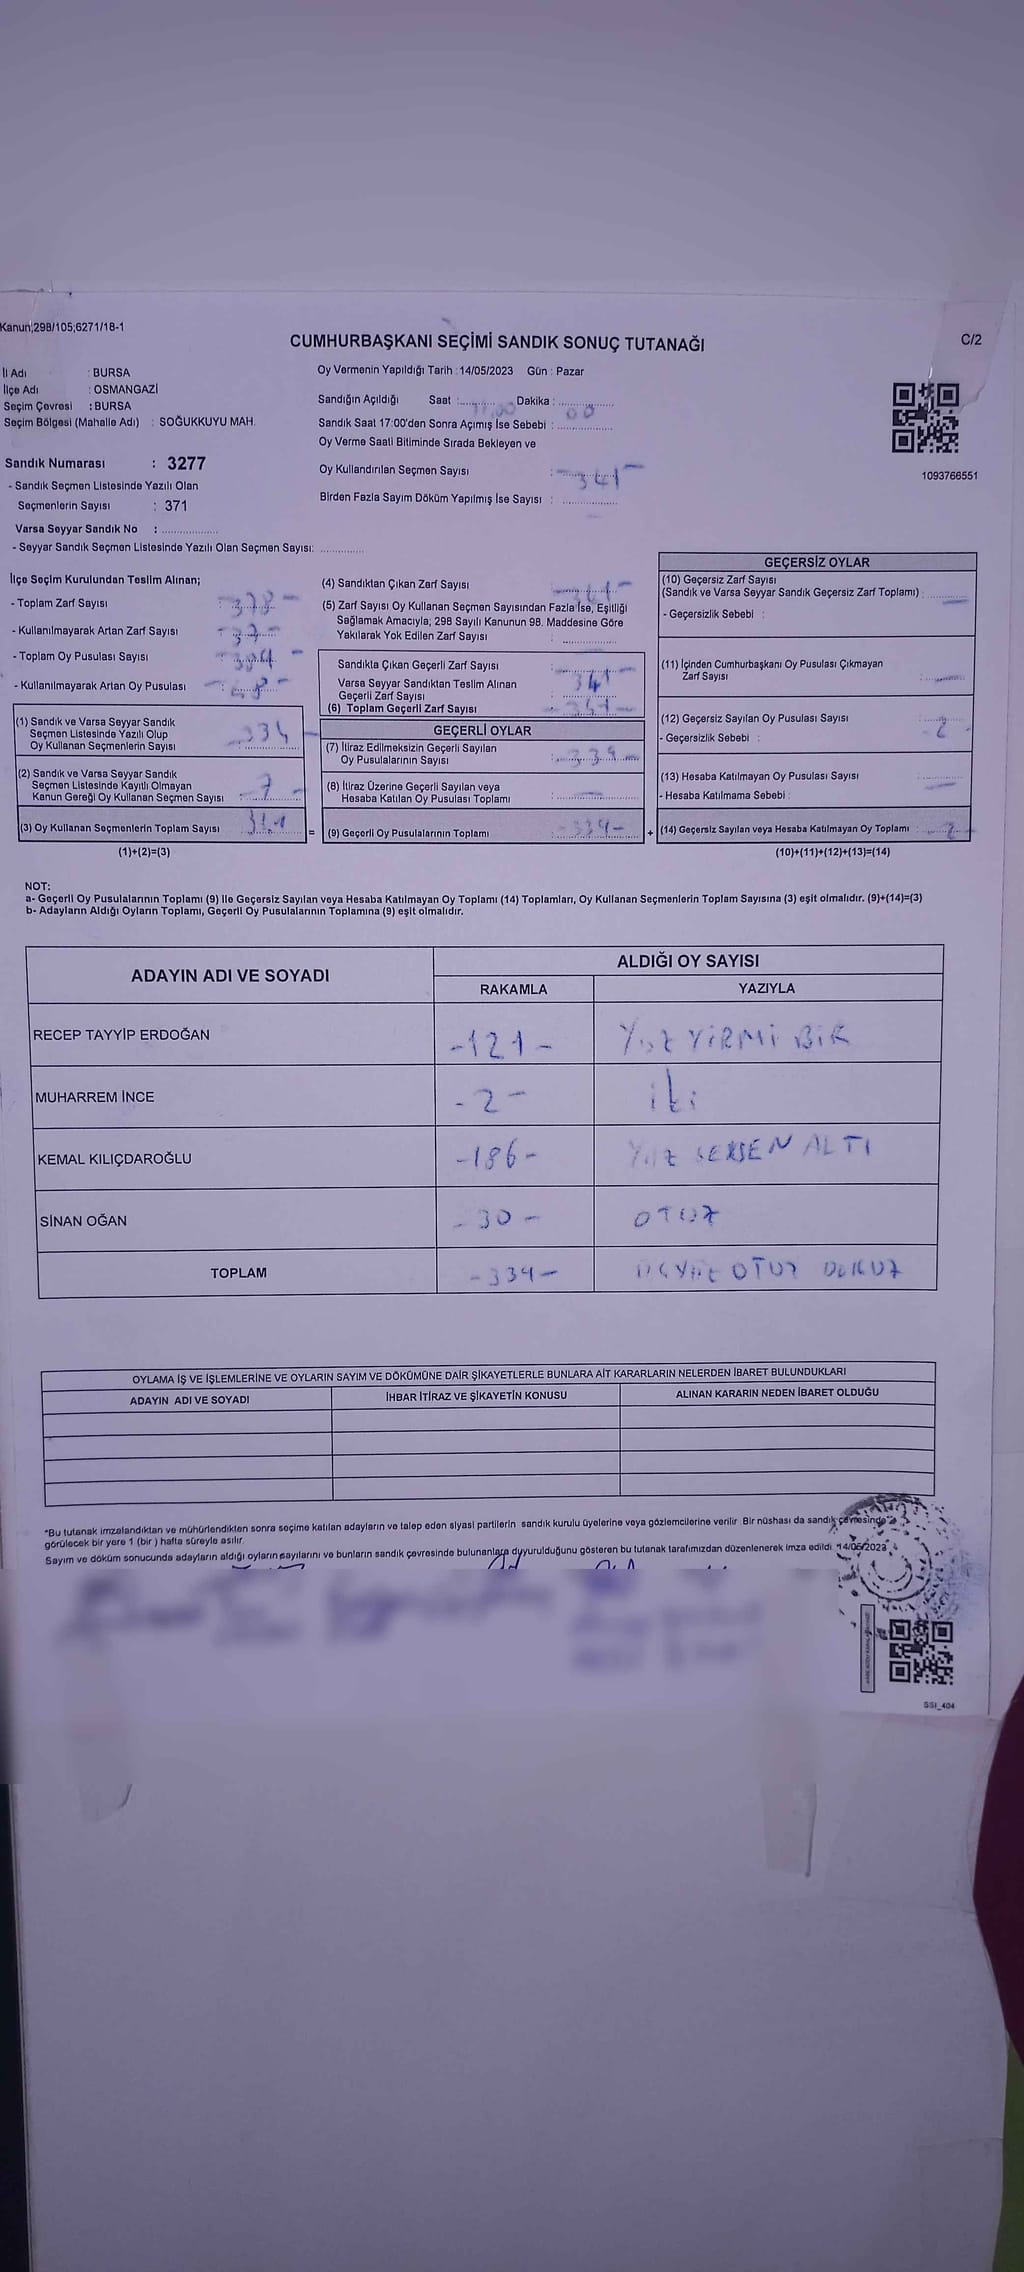 Kanun;298/105;6271/18-1
CUMHURBAŞKANI SEÇİMİ SANDIK SONUÇ TUTANAĞI
C/2
İl Adı : BURSA
İlçe Adı : OSMANGAZİ
Seçim Çevresi : BURSA
Seçim Bölgesi (Mahalle Adı) : SOĞUKKUYU MAH.
Sandık Numarası : 3277
- Sandık Seçmen Listesinde Yazılı Olan
Seçmenlerin Sayısı : 371
Varsa Seyyar Sandık No :
- Seyyar Sandık Seçmen Listesinde Yazılı Olan Seçmen Sayısı:
Oy Vermenin Yapıldığı Tarih :14/05/2023 Gün : Pazar
Sandığın Açıldığı Saat : Dakika : 00
Sandık Saat 17:00'den Sonra Açımış İse Sebebi :
Oy Verme Saati Bitiminde Sırada Bekleyen ve
Oy Kullandırılan Seçmen Sayısı : -341-
Birden Fazla Sayım Döküm Yapılmış İse Sayısı :
1093766551
İlçe Seçim Kurulundan Teslim Alınan;
- Toplam Zarf Sayısı : -378-
- Kullanılmayarak Artan Zarf Sayısı : -37-
- Toplam Oy Pusulası Sayısı
- Kullanılmayarak Artan Oy Pusulası
(1) Sandık ve Varsa Seyyar Sandık
Seçmen Listesinde Yazılı Olup
Oy Kullanan Seçmenlerin Sayısı -334-
(2) Sandık ve Varsa Seyyar Sandık
Seçmen Listesinde Kayıtlı Olmayan
Kanun Gereği Oy Kullanan Seçmen Sayısı -7-
(3) Oy Kullanan Seçmenlerin Toplam Sayısı
(1)+(2)=(3)
(4) Sandıktan Çıkan Zarf Sayısı
(5) Zarf Sayısı Oy Kullanan Seçmen Sayısından Fazla İse, Eşitliği
Sağlamak Amacıyla; 298 Sayılı Kanunun 98. Maddesine Göre
Yakılarak Yok Edilen Zarf Sayısı :
Sandıkta Çıkan Geçerli Zarf Sayısı : -341-
Varsa Seyyar Sandıktan Teslim Alınan
Geçerli Zarf Sayısı
(6) Toplam Geçerli Zarf Sayısı -341-
GEÇERLİ OYLAR
(7) İtiraz Edilmeksizin Geçerli Sayılan
Oy Pusulalarının Sayısı : -339-
(8) İtiraz Üzerine Geçerli Sayılan veya
Hesaba Katılan Oy Pusulası Toplamı :
= (9) Geçerli Oy Pusulalarının Toplamı -339-
GEÇERSİZ OYLAR
(10) Geçersiz Zarf Sayısı
(Sandık ve Varsa Seyyar Sandık Geçersiz Zarf Toplamı) :
- Geçersizlik Sebebi :
(11) İçinden Cumhurbaşkanı Oy Pusulası Çıkmayan
Zarf Sayısı :
(12) Geçersiz Sayılan Oy Pusulası Sayısı : -2-
- Geçersizlik Sebebi :
(13) Hesaba Katılmayan Oy Pusulası Sayısı :
- Hesaba Katılmama Sebebi :
+ (14) Geçersiz Sayılan veya Hesaba Katılmayan Oy Toplamı : -2-
(10)+(11)+(12)+(13)=(14)
NOT:
a- Geçerli Oy Pusulalarının Toplamı (9) ile Geçersiz Sayılan veya Hesaba Katılmayan Oy Toplamı (14) Toplamları, Oy Kullanan Seçmenlerin Toplam Sayısına (3) eşit olmalıdır. (9)+(14)=(3)
b- Adayların Aldığı Oyların Toplamı, Geçerli Oy Pusulalarının Toplamına (9) eşit olmalıdır.
ADAYIN ADI VE SOYADI
ALDIĞI OY SAYISI
RAKAMLA YAZIYLA
RECEP TAYYİP ERDOĞAN -121- YÜZ YİRMİ BİR
MUHARREM İNCE -2- iki
KEMAL KILIÇDAROĞLU -186- YÜZ SEKSEN ALTI
SİNAN OĞAN -30- OTUZ
TOPLAM -339- ÜÇYÜZ OTUZ DOKUZ
OYLAMA İŞ VE İŞLEMLERİNE VE OYLARIN SAYIM VE DÖKÜMÜNE DAİR ŞİKAYETLERLE BUNLARA AİT KARARLARIN NELERDEN İBARET BULUNDUKLARI
ADAYIN ADI VE SOYADI İHBAR İTİRAZ VE ŞİKAYETİN KONUSU ALINAN KARARIN NEDEN İBARET OLDUĞU
*Bu tutanak imzalandıktan ve mühürlendikten sonra seçime katılan adayların ve talep eden siyasi partilerin sandık kurulu üyelerine veya gözlemcilerine verilir. Bir nüshası da sandık çevresinde
görülecek bir yere 1 (bir ) hafta süreyle asılır.
Sayım ve döküm sonucunda adayların aldığı oyların sayılarını ve bunların sandık çevresinde bulunanlara duyurulduğunu gösteren bu tutanak tarafımızdan düzenlenerek imza edildi. 14/05/2023
SSI_404